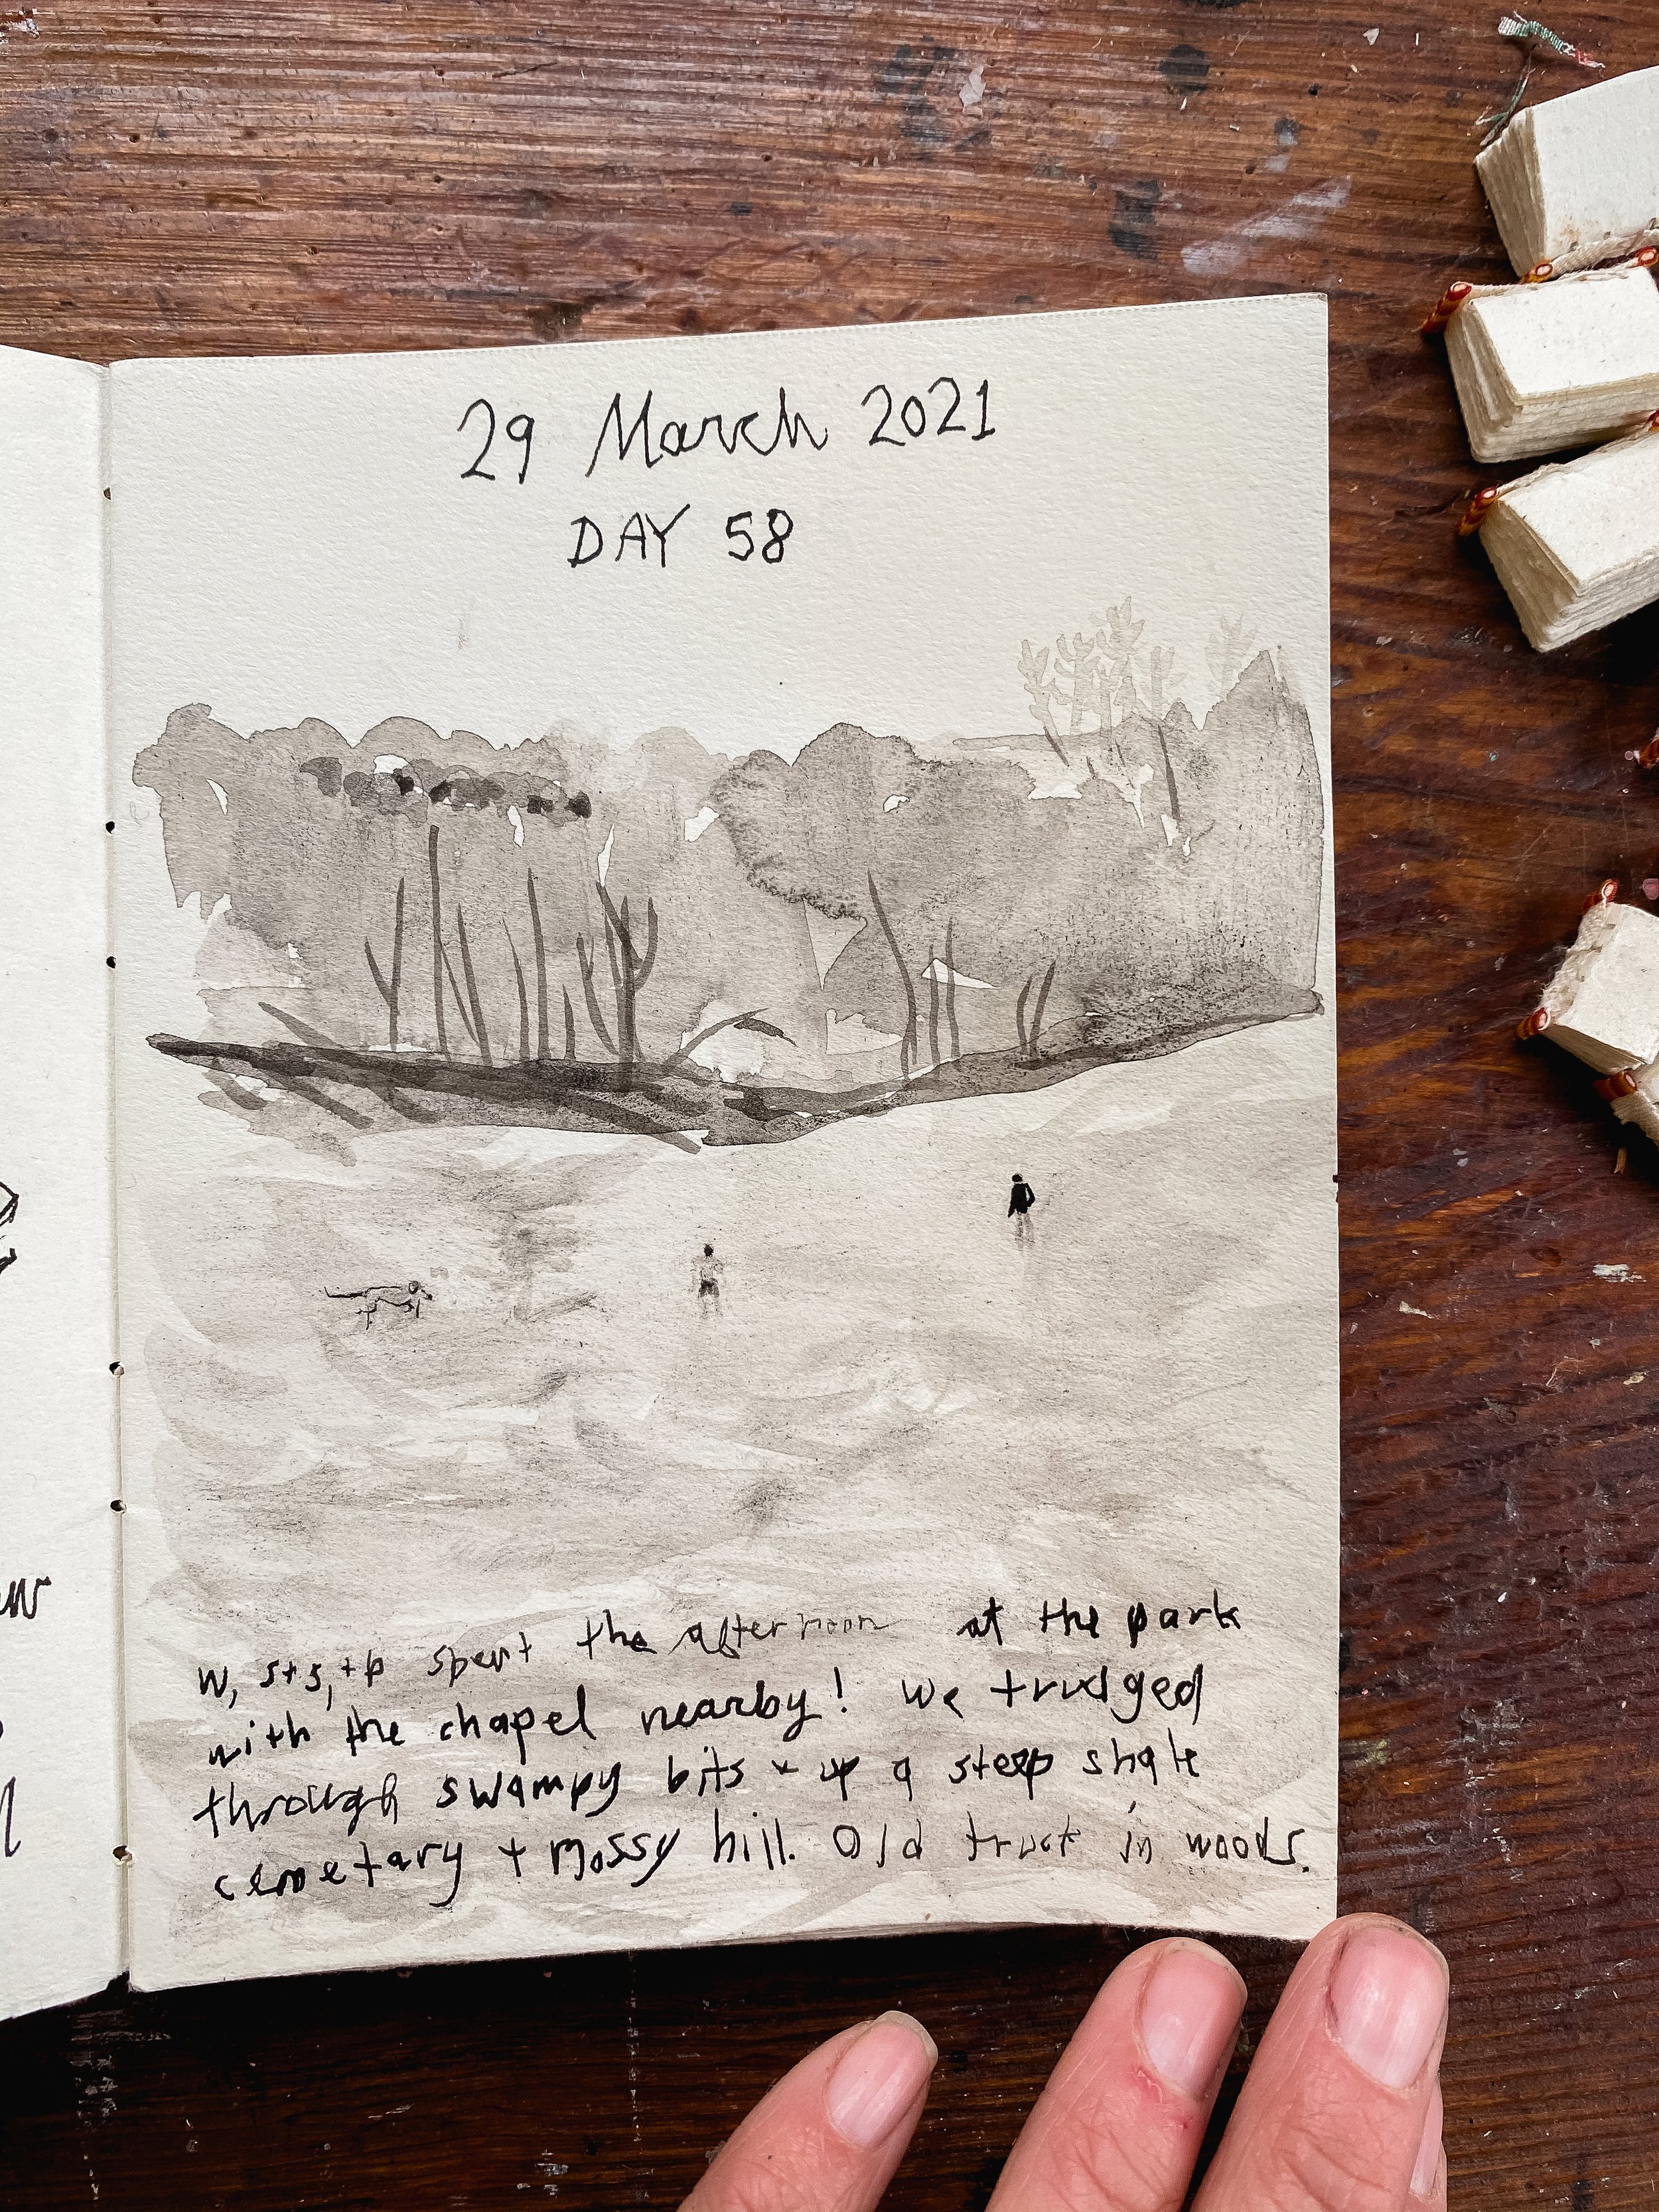 29 March 2021
DAY 58
w, s+s, +p spent the afternoon at the park
with the chapel nearby! we trudged
through swampy bits + up a steep shale
cemetary + mossy hill. Old truck in woods.